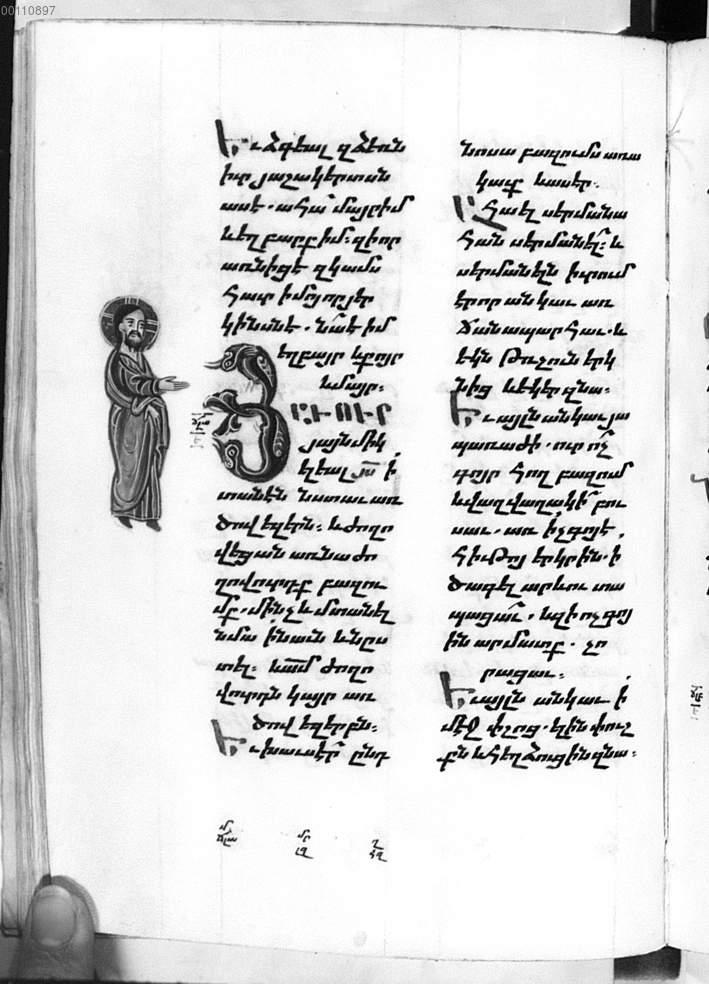 00110897
Եւ ձգեալ զձեռն
իւր յաշակերտսն
ասէ. ահա մայր իմ
և եղբարք իմ: զի որ
առնիցէ զկամս
հաւր իմոյ որ յեր
կինսն է. նա է իմ
եղբայր և քոյր
և մայր:
ՅԱՒՈՒՐ
յայնմիկ
ելեալ յս ի
տանէն նստաւ առ
ծովեզերն: և ժողո
վեցան առ նա ժո
ղովուրդք բազու
մք. մինչև մտանել
նմա ի նաւն և նըս
տել: և ամ ժողո
վուրդն կայր առ
ծովեզերբն:
Եւ խաւսէր ընդ
նոսա բազումս առա
կաւք և ասէր.
Ահա ել սերմանա
հան սերմանել: և
սերմանելն իւրում
էր որ անկաւ առ
ճանապարհաւ. և
եկն թռչուն երկ
նից և եկեր զնա:
Եւ այլն անկաւ յա
պառաժի. ուր ոչ
գոյր հող բազում
և վաղվաղակի բու
սաւ. առ ի չգոյէ
հիւթոյ երկրին. ի
ծագել արևու տա
պացաւ. և զի ոչ գոյ
ին արմատք. չո
րացաւ:
Եւ այլն անկաւ ի
մէջ փշոց. ելին փուշ
քն և հեղձուցին զնա: